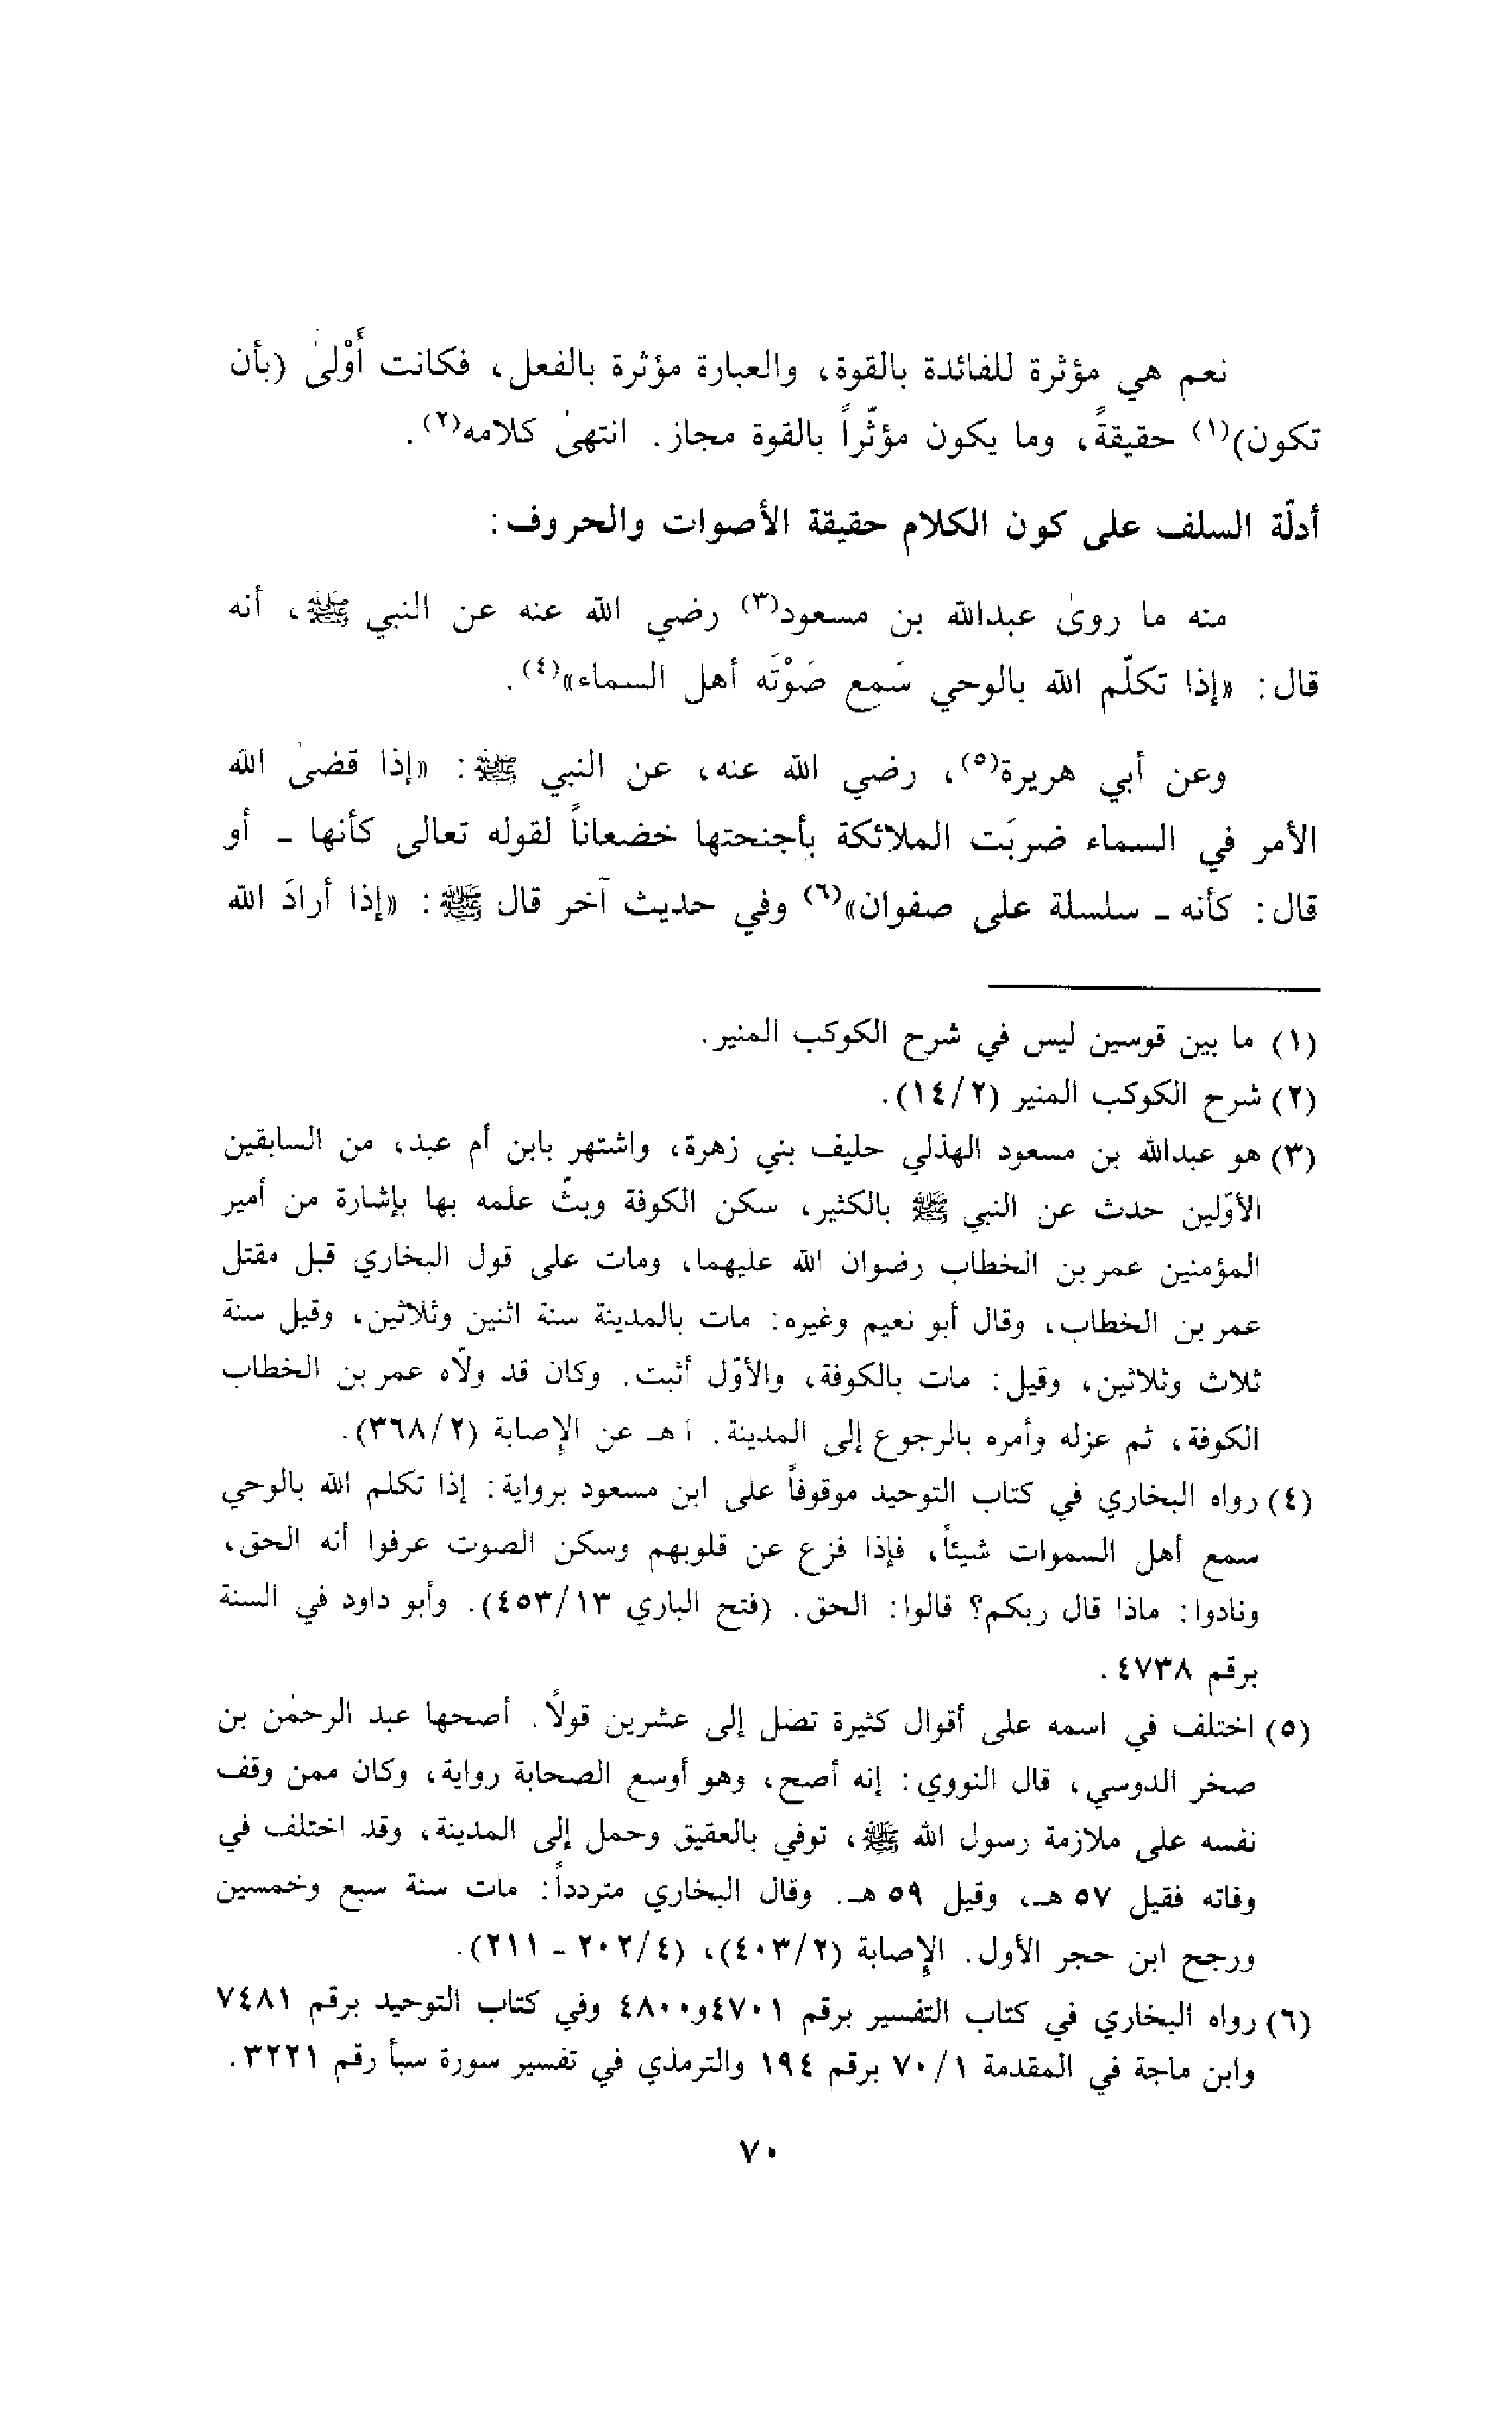 نعم هي مؤثرة للفائدة بالقوة، والعبارة مؤثرة بالفعل، فكانت أَوْلىٰ (بأن
تكون)(١) حقيقةً، وما يكون مؤثّراً بالقوة مجاز. انتهىٰ كلامه(٢).
أدلّة السلف على كون الكلام حقيقة الأصوات والحروف:
منه ما روىٰ عبدالله بن مسعود(٣) رضي الله عنه عن النبي ﷺ، أنه
قال: «إذا تكلّم الله بالوحي سَمع صَوْتَه أهل السماء»(٤).
وعن أبي هريرة(٥)، رضي الله عنه، عن النبي ﷺ: «إذا قضىٰ الله
الأمر في السماء ضربَت الملائكة بأجنحتها خضعاناً لقوله تعالى كأنها - أو
قال: كأنه - سلسلة على صفوان»(٦) وفي حديث آخر قال ﷺ: «إذا أرادَ الله
(١) ما بين قوسين ليس في شرح الكوكب المنير.
(٢) شرح الكوكب المنير (١٤/٢).
(٣) هو عبدالله بن مسعود الهذلي حليف بني زهرة، واشتهر بابن أم عبد، من السابقين
الأوّلين حدث عن النبي ﷺ بالكثير، سكن الكوفة وبثّ علمه بها بإشارة من أمير
المؤمنين عمر بن الخطاب رضوان الله عليهما، ومات على قول البخاري قبل مقتل
عمر بن الخطاب، وقال أبو نعيم وغيره: مات بالمدينة سنة اثنين وثلاثين، وقيل سنة
ثلاث وثلاثين، وقيل: مات بالكوفة، والأوّل أثبت. وكان قد ولّاه عمر بن الخطاب
الكوفة، ثم عزله وأمره بالرجوع إلى المدينة. ا هـ عن الإصابة (٣٦٨/٢).
(٤) رواه البخاري في كتاب التوحيد موقوفاً على ابن مسعود برواية: إذا تكلم الله بالوحي
سمع أهل السموات شيئاً، فإذا فزع عن قلوبهم وسكن الصوت عرفوا أنه الحق،
ونادوا: ماذا قال ربكم؟ قالوا: الحق. (فتح الباري ٤٥٣/١٣). وأبو داود في السنة
برقم ٤٧٣٨.
(٥) اختلف في اسمه على أقوال كثيرة تصل إلى عشرين قولاً. أصحها عبد الرحمٰن بن
صخر الدوسي، قال النووي: إنه أصح، وهو أوسع الصحابة رواية، وكان ممن وقف
نفسه على ملازمة رسول الله ﷺ، توفي بالعقيق وحمل إلى المدينة، وقد اختلف في
وفاته فقيل ٥٧ هـ، وقيل ٥٩ هـ. وقال البخاري متردداً: مات سنة سبع وخمسين
ورجح ابن حجر الأول. الإصابة (٤٠٣/٢)، (٢٠٢/٤ - ٢١١).
(٦) رواه البخاري في كتاب التفسير برقم ٤٧٠١و٤٨٠٠ وفي كتاب التوحيد برقم ٧٤٨١
وابن ماجة في المقدمة ٧٠/١ برقم ١٩٤ والترمذي في تفسير سورة سبأ رقم ٣٢٢١.
٧٠